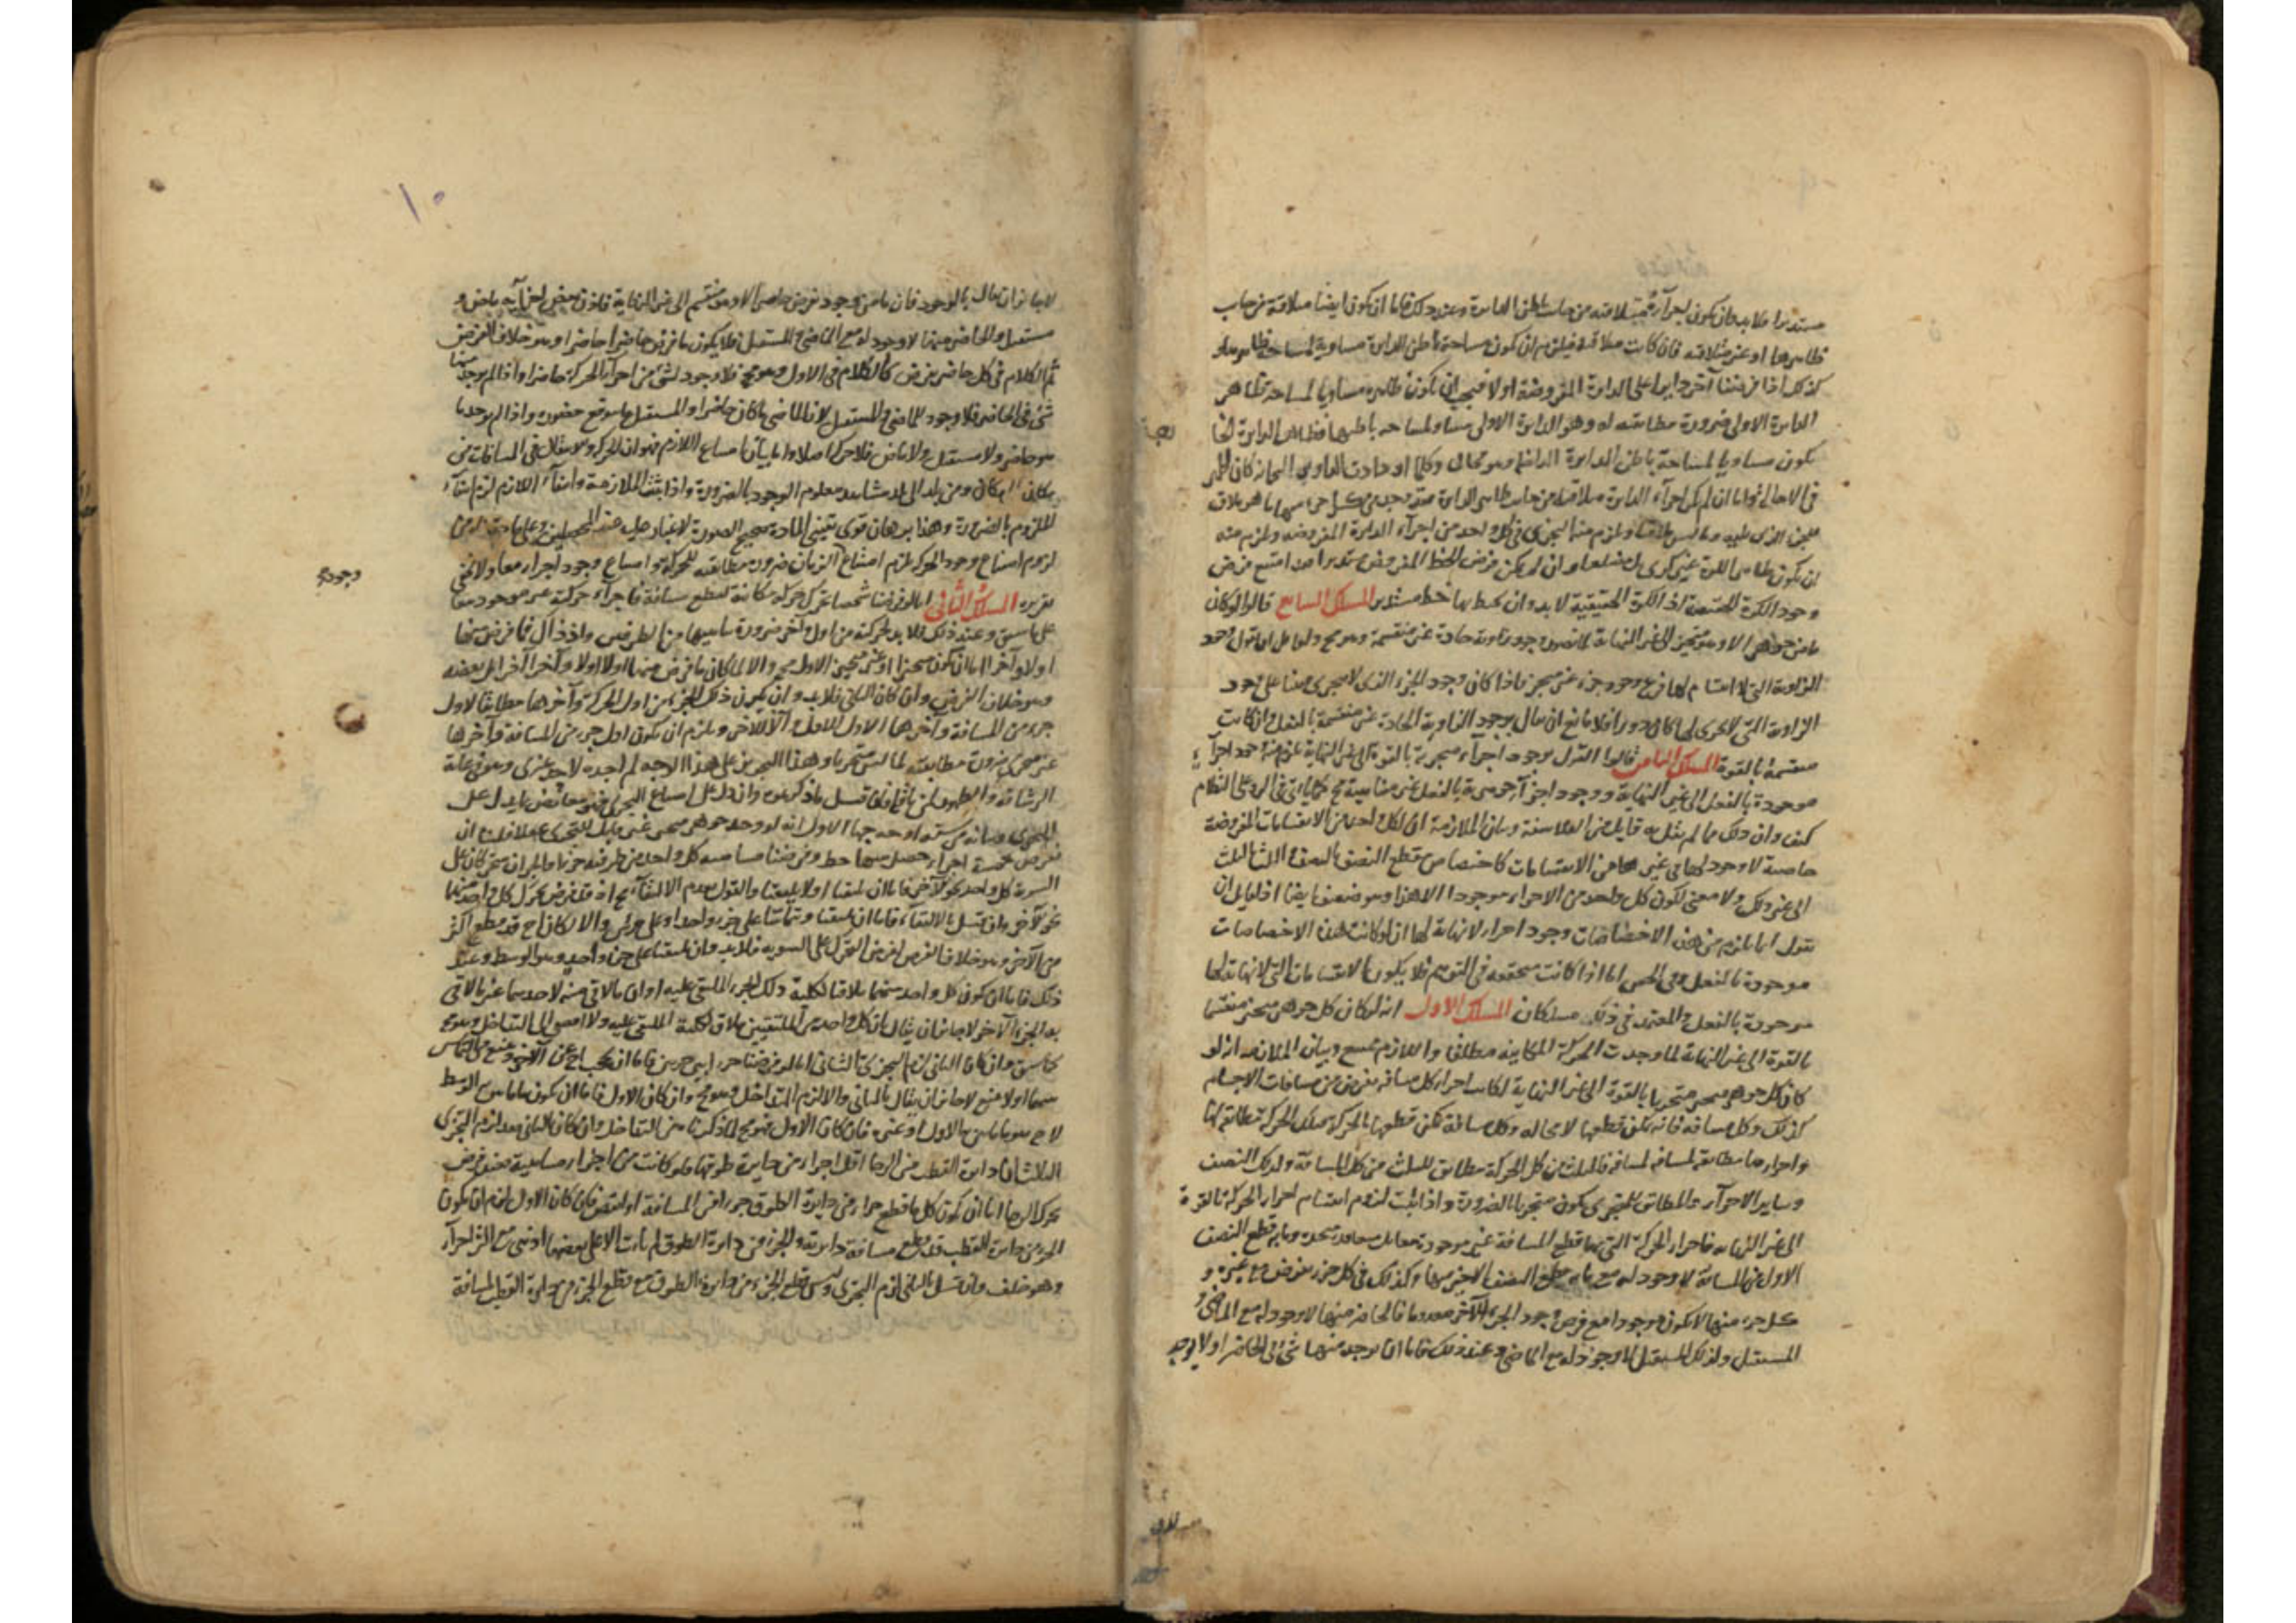 مستديرا فلا بد وان يكون اجزآؤه متلاقية من جانب باطن الدايرة وعند ذلك فاما ان يكون ايضا متلاقية من جانب
ظاهرها او غير متلاقية فان كانت متلاقية فيلزم ان يكون مساحة باطن الدايرة مساوية لمساحة ظاهرها و
كذلك اذا فرضنا آخر دايرا على الدايرة المفروضة اولا فيجب ان يكون ظاهره مساويا لمساحة ظاهر
الدايرة الاولى ضرورة مطابقته له وهو الدايرة الاولى مساو لمساحة باطنها فظاهر الدايرة
يكون مساويا لمساحة باطن الدايرة الداخلة وهو محال وكلما ازدادت الدواير
في الاحالة واما ان لم يكن اجزآء الدايرة متلاقية من جانب ظاهر الدايرة فقد وجد من كل جزء منها ما هو ملاق
للجزء الذي يليه وما ليس ملاقيا ويلزم منه التجزى في كل واحد من اجزآء الدايرة المفروضة ويلزم منه
ان يكون ظاهر الكرة غير كرى بل مضلعا وان لم يكن فرض الخط المفروض مستديرا فقد امتنع فرض
وجود الكرة الحقيقية اذ الكرة الحقيقية لا بد وان يحيط بها خط مستدير المسلك السابع قالوا لو كان
ما من جوهر الا وهو متجز الى غير النهاية لما تصور وجود زاوية حادة غير منقسمة وهو مح ولقايل ان يقول وجود
الزاوية التي لا انقسام لها فرع وجود جزء غير متجز فاذا كان وجود الجزء الذي لا يتجزى مبنيا على وجود
الزاوية التي لا تجزى لها كان دورا فلا مانع ان يقال بوجود الزاوية الحادة غير منقسمة بالفعل وان كانت
منقسمة بالقوة المسلك الثامن قالوا القول بوجود اجزآء متجزية بالقوة الى غير النهاية يلزم منه وجود اجزآء
موجودة بالفعل الى غير النهاية ووجود اجزآء موجودة بالفعل غير متناهية مح كما ياتي في الرد على النظام
كيف وان ذلك مما لم يقل به قايل من الفلاسفة وبيان الملازمة ان لكل واحد من الانقسامات المفروضة
خاصية لا وجود لها في غيرها من الانقسامات كاختصاص مقطع النصف بالنصف والثلث بالثلث
الى غير ذلك ولا معنى لكون كل واحد من الاجزاء موجودا الا هذا وهو ضعيف ايضا اذ لقايل ان
يقول انما يلزم من هذه الاختصاصات وجود اجزاء لا نهاية لها ان لو كانت هذه الاختصاصات
موجودة بالفعل وفي الحس اما اذا كانت متحققة في التوهم فلا يكون الانقسامات التي لا نهاية لها
موجودة بالفعل والمعتمد في ذلك مسلكان المسلك الاول انه لو كان كل جوهر متحيز منقسما
بالقوة الى غير النهاية لما وجدت الحركة المكانية مطلقا واللازم ممتنع وبيان الملازمة انه لو
كان كل جوهر متحيز متجزيا بالقوة الى غير النهاية لكانت اجزاء كل مسافة تفرض من مسافات الاجسام
كذلك وكل مسافة فانه يمكن قطعها لا محالة وكل مسافة يمكن قطعها بالحركة فتلك الحركة مطابقة لها
واجزاؤها مطابقة لمسافة لمسافة فالثلث من كل الحركة مطابق للثلث من كل المسافة وكذلك النصف
وساير الاجزآء والمطابق للمتجزى يكون متجزيا بالضرورة واذا ثبت لزوم انقسام اجزاء الحركة بالقوة
الى غير النهاية فاجزاء الحركة التي بها قطع المسافة غير موجودة معا بل متعاقبة متجددة وما به قطع النصف
الاول من المسافة لا وجود له مع ما به قطع النصف الاخير منها وكذلك في كل جزء يفرض مع غيره و
كل جزء منها لا يكون موجودا مع فرض وجود الجزء الآخر معدوما فالحاضر منها لا وجود له مع الماضى و
المستقبل وكذلك المستقبل لا وجود له مع الماضي وعند ذلك فاما ان يوجد منها شئ في الحاضر او لا يوجد
١٠
لا جايز ان يقال بالوجود فان ما من موجود يفرض حاضرا الا وهو منقسم الى غير النهاية فاذن بعض اجزآيه ماض و
مستقبل والحاضر منها لا وجود له مع الماضى والمستقبل فلا يكون ما فرض حاضرا حاضرا وهو خلاف الفرض
ثم الكلام في كل حاضر يفرض كالكلام في الاول وهو مح فلا وجود لشئ من اجزآء الحركة حاضرا واذا لم يوجد منها
شئ في الحاضر فلا وجود للماضى والمستقبل لان الماضي ما كان حاضرا والمستقبل ما يتوقع حضوره واذا لم يوجد ما
هو حاضر ولا مستقبل ولا ماض فلا حركة اصلا واما بيان امتناع اللازم فهو ان الحركة وهو الانتقال في المسافات من
مكان الى مكان ومن بلد الى بلد مشاهد معلوم الوجود بالضرورة واذا ثبتت الملازمة وانتفآء اللازم لزم انتفآء
الملزوم بالضرورة وهذا برهان قوى يقيني المادة صحيح الصورة لا غبار عليه عند المحصلين وعلى ما حققناه من
لزوم امتناع وجود الحركة يلزم امتناع الزمان ضرورة مطابقته للحركة وامتناع وجود اجزاء معا ولا يخفى
وجوده
تقريره المسلك الثانى انا لو فرضنا شخصا تحرك حركة مكانية لقطع مسافة فاجزآء حركته غير موجودة معا
على ما سبق وعند ذلك فلا بد لحركته من اول وآخر ضرورة تناهيها من الطرفين واذ ذاك فما فرض منها
اولا وآخرا اما ان يكون متجزيا او غير متجز الاول مح والا لما كان ما فرض منهما اولا اولا ولا آخرا آخرا بل بعضه
وهو خلاف الفرض وان كان الثانى فلا بد وان يكون ذلك الجزء من اول الحركة وآخرها مطابقا لاول
جزء من المسافة وآخرها الاول للاول والآخر للآخر ويلزم ان يكون اول جزء من المسافة وآخرها
غير متجز ضرورة مطابقته لما ليس متجزيا وهذا التحرير على هذا الوجه لم اجده لاحد غيرى وهو في غاية
الرشاقة والظهور لمن تامله فان قيل ما ذكرتموه وان دل على امتناع التجزى فهو معارض بما يدل على
التجزى وبيانه من ستة اوجه الاول انه لو وجد جوهر متحيز غير قابل للتجزى فلنا ان
نفرض خمسة اجزاء حصل منها خط وفرضنا مسامتة كل واحد من طرفيه جزءا والجزان متحركان على
السوية كل واحد نحو الآخر فاما ان يلتقيا او لا يلتقيا والقول بعدم الالتقآء مح اذ قد فرض تحرك كل واحد منهما
نحو الآخر وان قيل بالالتقآء فاما ان يلتقيا ويتماسا على جزء واحد او على جزئين والا لكان احدهما قد قطع اكثر
من الآخر وهو خلاف الفرض لفرض التحرك على السوية فلا بد وان يلتقيا على جزء واحد وهو الوسط وعند
ذلك فاما ان يكون كل واحد منهما ملاقيا لكلية ذلك الجزء الملتقى عليه او ان ما لاقى منه لاحدهما غير ما لاقى
به الجزء الآخر لا جايز ان يقال بان كل واحد من الملتقيين ملاق لكلية الملتقى عليه والا افضى الى التداخل وهو مح
كما سبق وان كان الثانى لزم التجزى الثانى انا لو فرضنا جزءا بين جزءين فاما ان يحجب احدهما عن الآخر ويمنع من التماس
بينهما او لا يمنع لا جايز ان يقال بالثانى والا لزم التداخل وهو مح وان كان الاول فاما ان يكون ما ماس من الوسط
لاحدهما هو ما ماس به الاول او غيره فان كان الاول فهو مح لما ذكرنا من التداخل وان كان الثانى فقد لزم التجزى
الثالث ان دايرة القطب من الرحا اقل اجزاء من دايرة طوقها فلو كانت من اجزاء متناهية فعند فرض
تحرك الرحا اما ان يكون كلما قطع جزء من دايرة الطوق جزءا من المسافة او انقص فان كان الاول لزم ان يكون
الجزء من دايرة القطب قد قطع مسافة دايرته والجزء من دايرة الطوق لم يات الا على بعضها اذ هي من اكثر اجزآء
وهو خلف وان قيل بالثانى لزم التجزى وهو قطع الجزء من دايرة الطوق مع قطع الجزء من دايرة القطب لمسافة